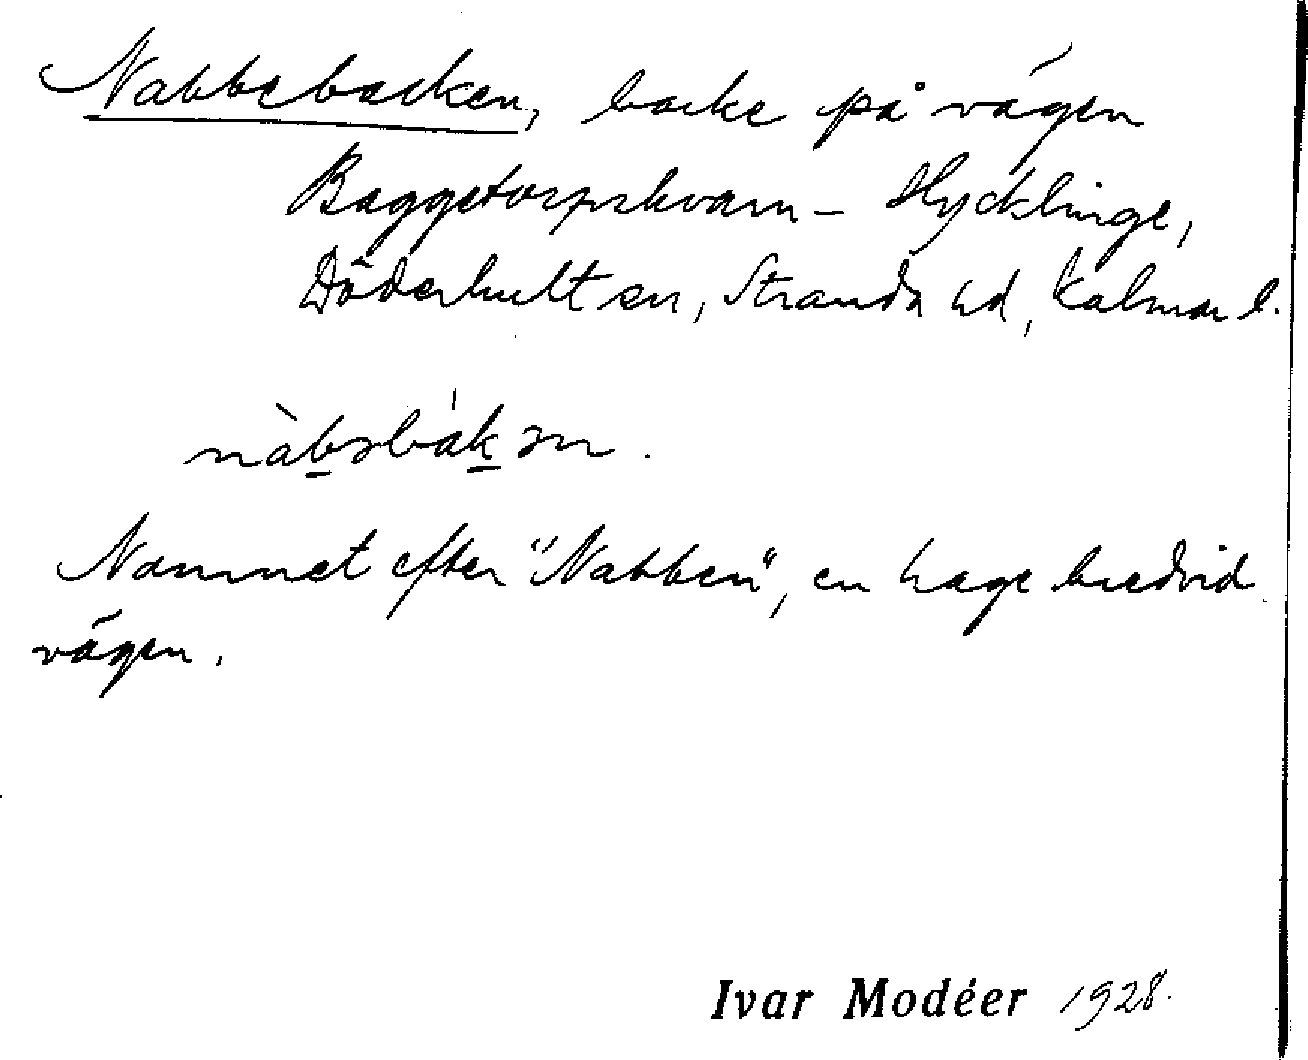 Nabbebacken, backe på vägen
Baggetorpskvarn – Hycklinge,
Döderhult sn, Stranda hd, Kalmar l.
nàb̲əbák̲ən.
Namnet efter "Nabben", en hage bredvid
vägen.
Ivar Modéer 1928.